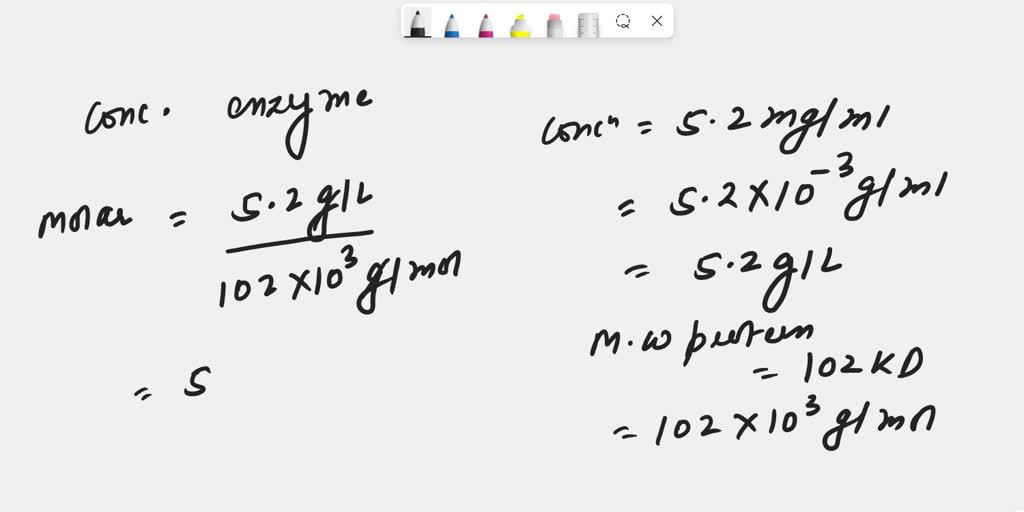 Conc. enzyme
molar = 5.2 g/L
102×10³ g/mol
= 5
concⁿ = 5.2 mg/ml
= 5.2×10⁻³ g/ml
= 5.2 g/L
M.W protein
= 102 KD
= 102×10³ g/mol